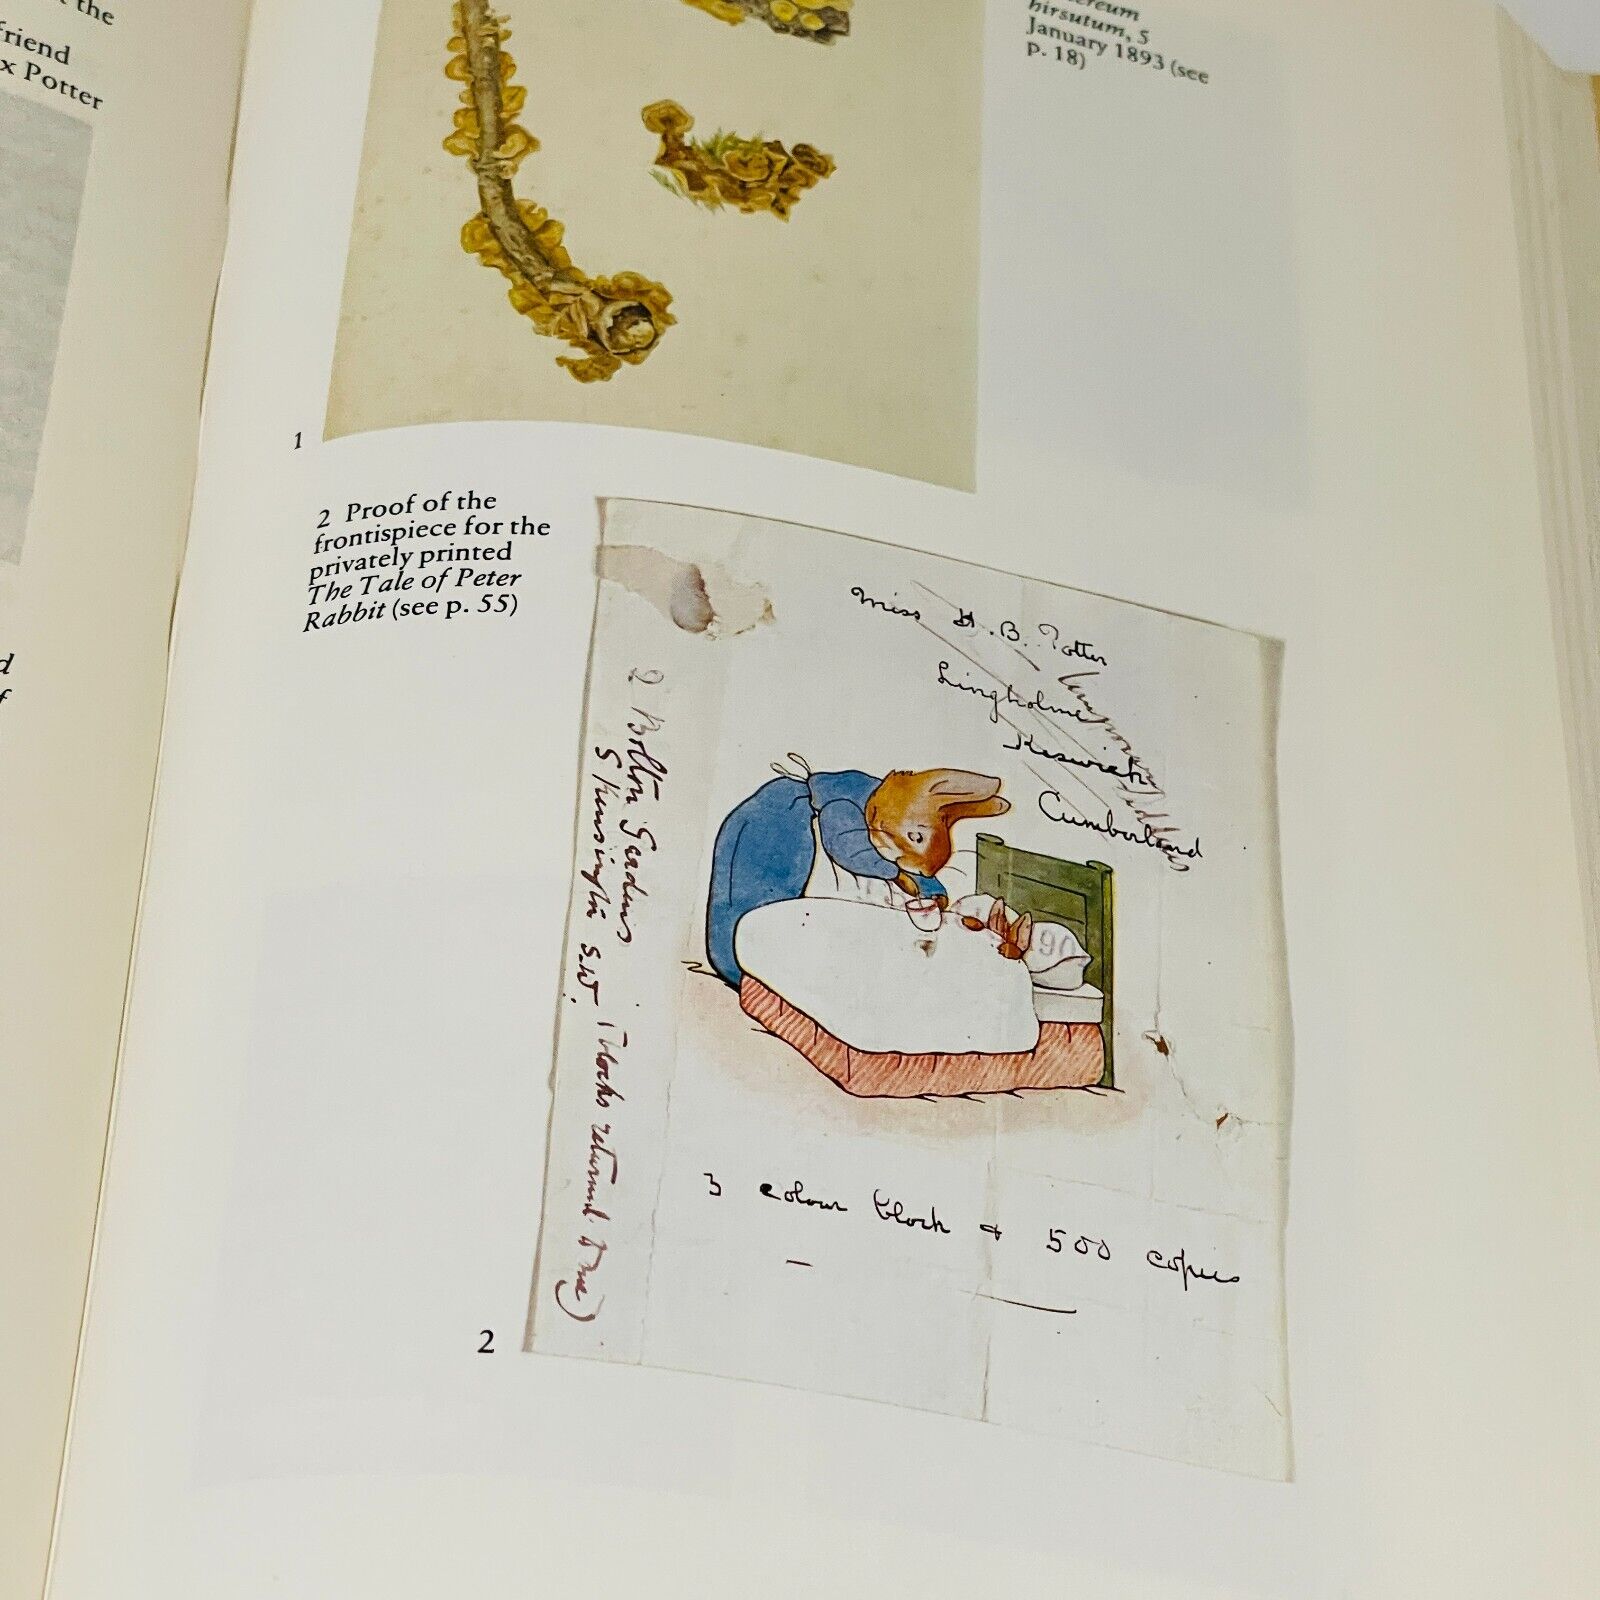 the
friend
x Potter
d
f
hirsutum, 5
January 1893 (see
p. 18)
1
2 Proof of the
frontispiece for the
privately printed
The Tale of Peter
Rabbit (see p. 55)
Miss H. B. Potter
Lingholme
Keswick
Cumberland
2 Bolton Gardens
S Kensington S.W.
(blocks returned to me)
3 colour block & 500 copies
2